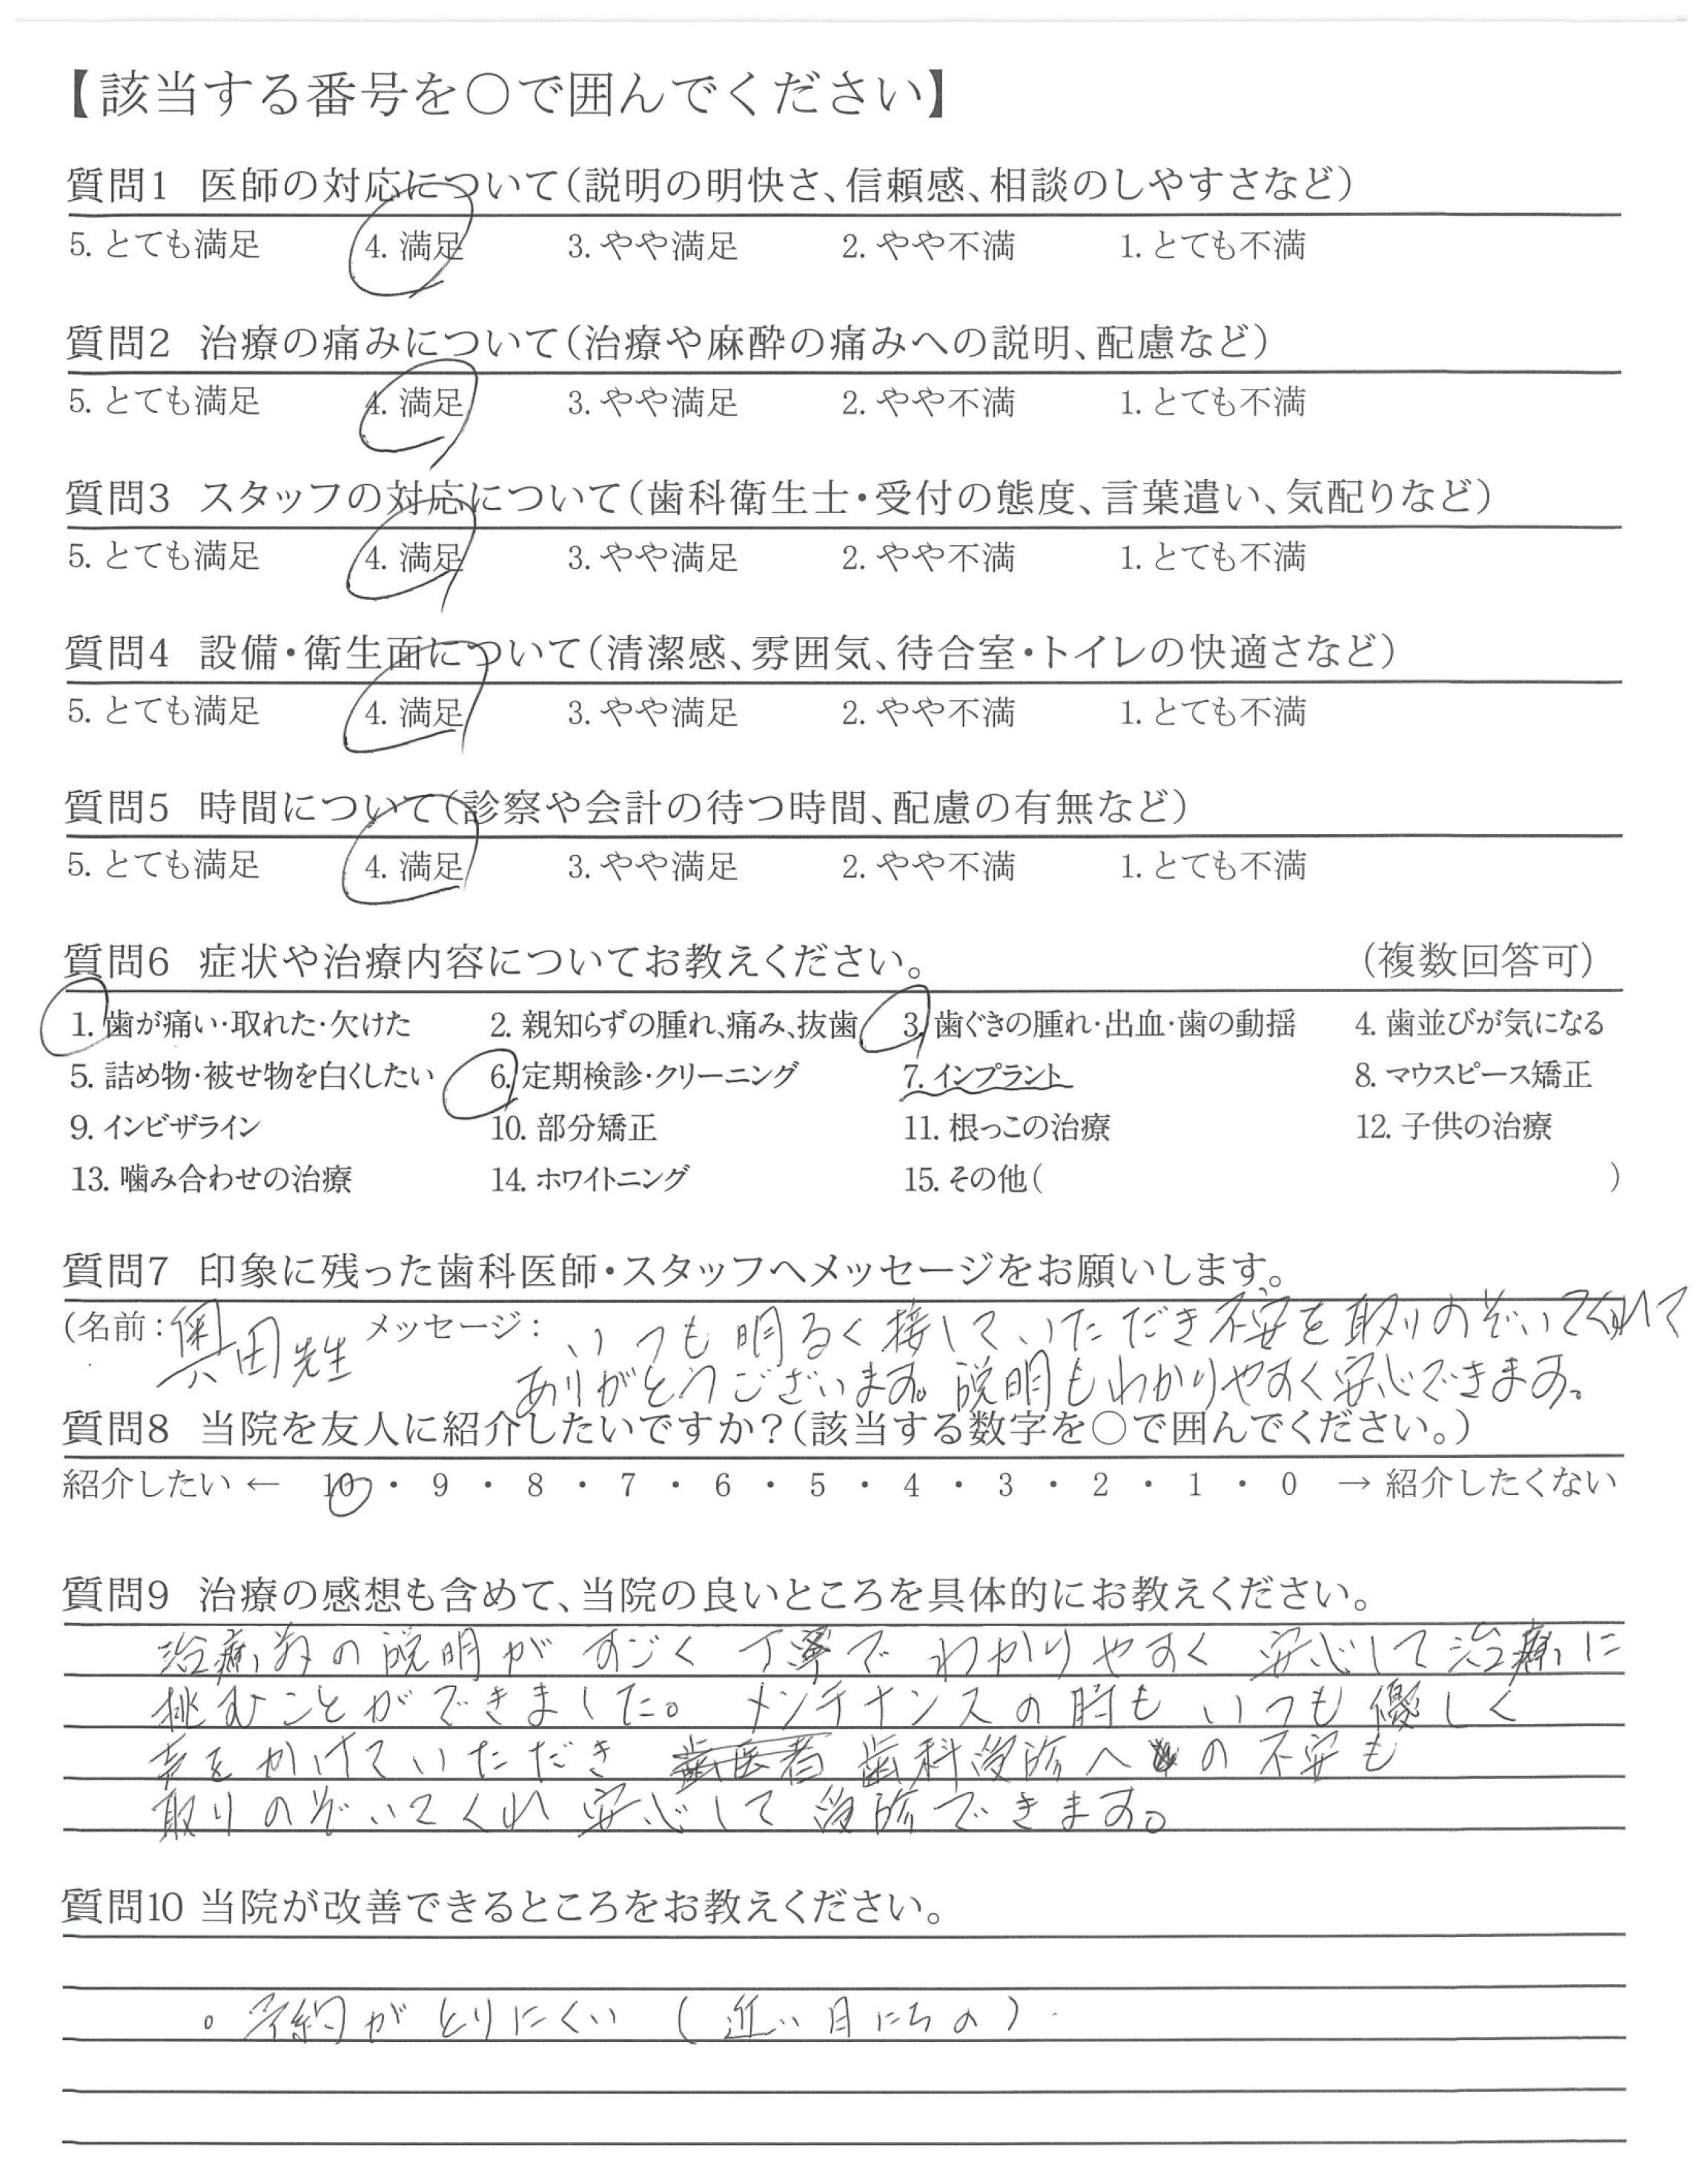 【該当する番号を〇で囲んでください】
質問1 医師の対応について(説明の明快さ、信頼感、相談のしやすさなど)
5. とても満足 4. 満足 3. やや満足 2. やや不満 1. とても不満
質問2 治療の痛みについて(治療や麻酔の痛みへの説明、配慮など)
5. とても満足 4. 満足 3. やや満足 2. やや不満 1. とても不満
質問3 スタッフの対応について(歯科衛生士・受付の態度、言葉遣い、気配りなど)
5. とても満足 4. 満足 3. やや満足 2. やや不満 1. とても不満
質問4 設備・衛生面について(清潔感、雰囲気、待合室・トイレの快適さなど)
5. とても満足 4. 満足 3. やや満足 2. やや不満 1. とても不満
質問5 時間について(診察や会計の待つ時間、配慮の有無など)
5. とても満足 4. 満足 3. やや満足 2. やや不満 1. とても不満
質問6 症状や治療内容についてお教えください。 (複数回答可)
1. 歯が痛い・取れた・欠けた 2. 親知らずの腫れ、痛み、抜歯 3. 歯ぐきの腫れ・出血・歯の動揺 4. 歯並びが気になる
5. 詰め物・被せ物を白くしたい 6. 定期検診・クリーニング 7. インプラント 8. マウスピース矯正
9. インビザライン 10. 部分矯正 11. 根っこの治療 12. 子供の治療
13. 噛み合わせの治療 14. ホワイトニング 15. その他( )
質問7 印象に残った歯科医師・スタッフへメッセージをお願いします。
(名前: 奥田先生 メッセージ: いつも明るく接していただき不安を取りのぞいてくれて
ありがとうございます。説明もわかりやすく安心できます。
質問8 当院を友人に紹介したいですか?(該当する数字を〇で囲んでください。)
紹介したい ← 10 ・ 9 ・ 8 ・ 7 ・ 6 ・ 5 ・ 4 ・ 3 ・ 2 ・ 1 ・ 0 → 紹介したくない
質問9 治療の感想も含めて、当院の良いところを具体的にお教えください。
治療の説明がすごく丁寧でわかりやすく安心して治療に
挑むことができました。メンテナンスの時もいつも優しく
声をかけていただき 歯医者 歯科受診への不安も
取りのぞいてくれ安心して受診できます。
質問10 当院が改善できるところをお教えください。
。予約がとりにくい (近い日にちの)